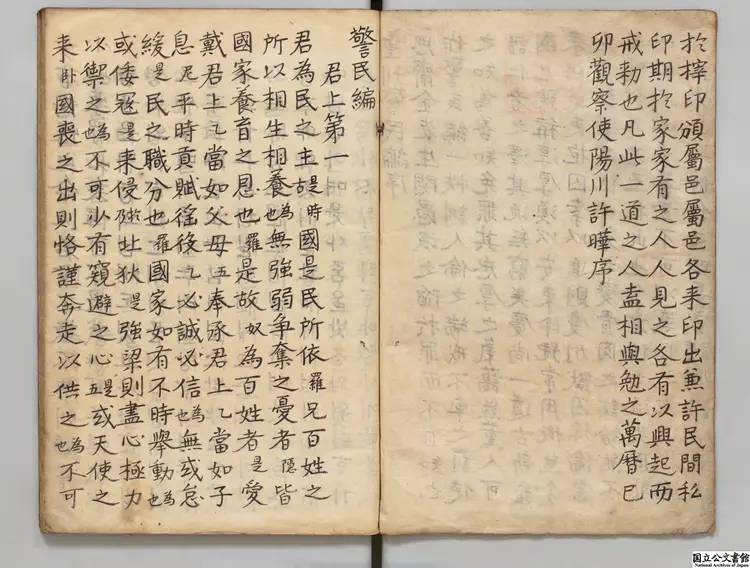 於梓印頒屬邑屬邑各来印出兼許民間私
印期於家家有之人人見之各有以興起而
戒勑也凡此一道之人盍相與勉之萬曆已
卯觀察使陽川許曄序
警民編
君上第一
君為民之主是時國是民所依羅凡百姓之
所以相生相養為也無強弱争奪之憂者隱皆
國家養育之恩也羅是故奴為百姓者是愛
戴君上乙當如父母五奉承君上乙當如子
息尼平時貢賦徭役乙必誠必信為也無或怠
緩是民之職分也羅國家如有不時舉動為也
或倭寇是来侵北狄是強梁則盡心極力
以禦之為也不可少有窺避之心是五或天使之
来卧國喪之出則恪謹奔走以供之為也不可
国立公文書館
National Archives of Japan